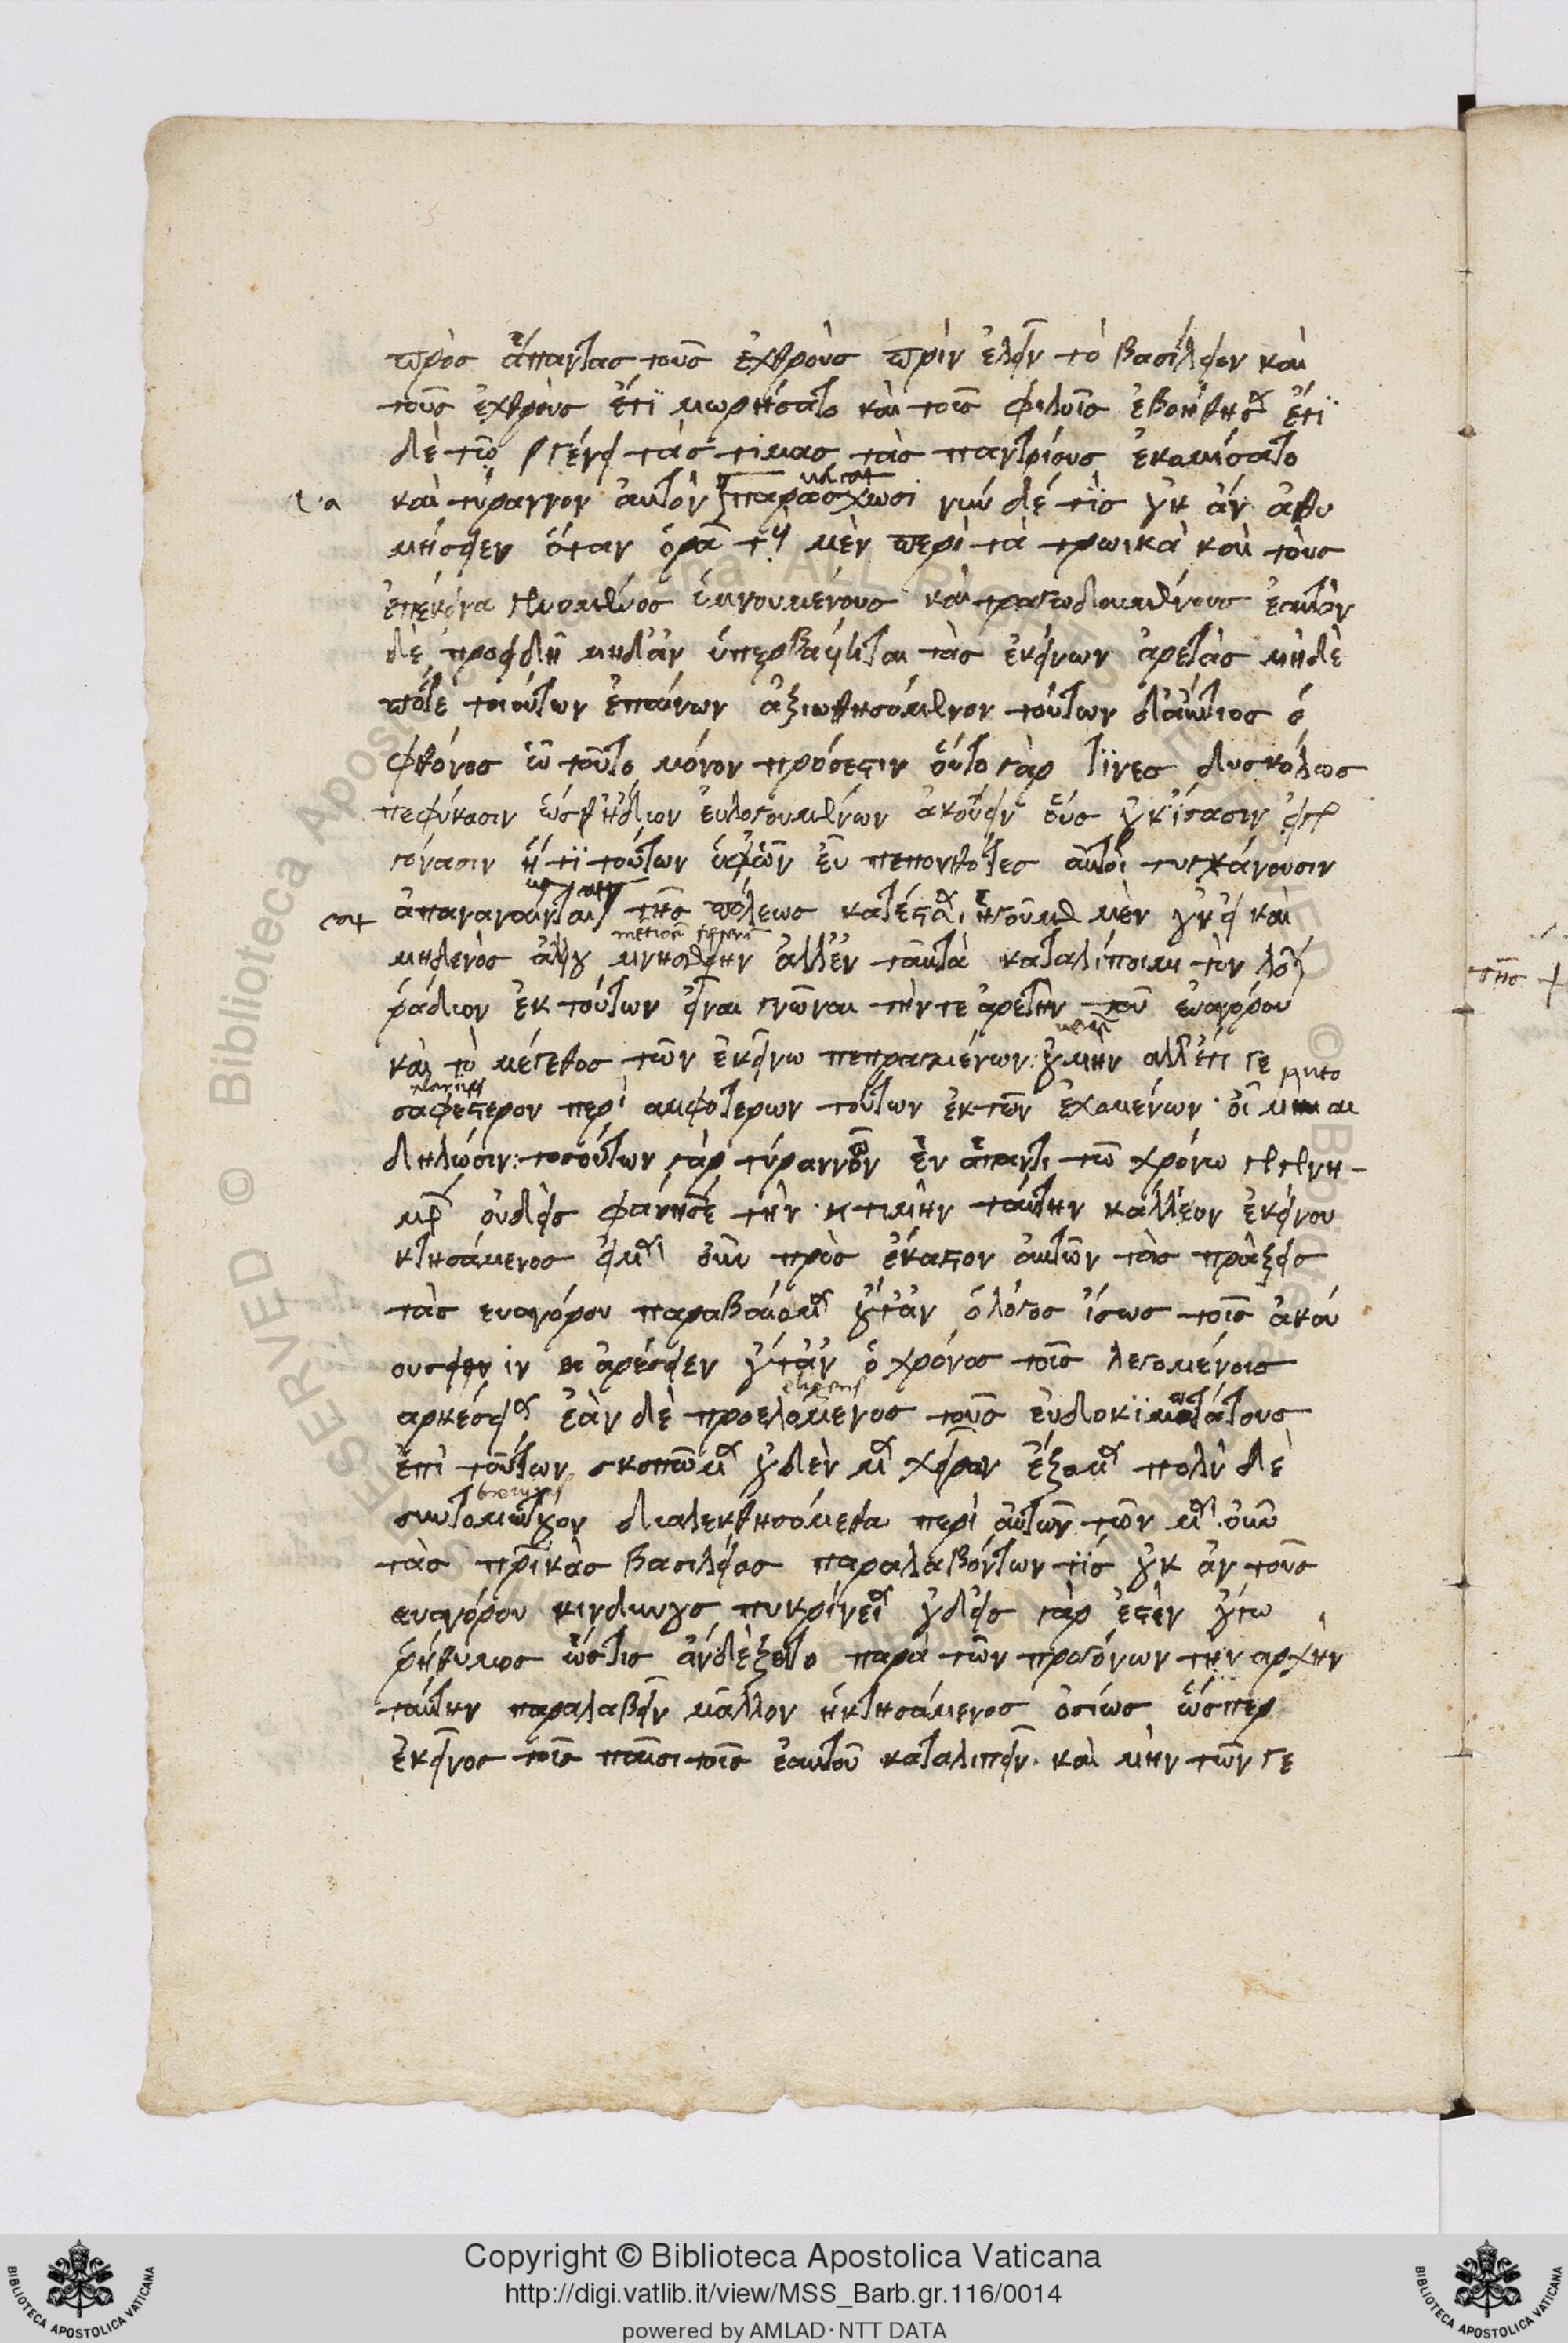 πρὸς ἅπαντας τοὺς ἐχθροὺς πρὶν ἑλεῖν τὸ βασίλειον καὶ
τοὺς ἐχθροὺς ἐτϊμωρήσατο καὶ τοῖς φίλοις ἐβοήθησεν ἔτϊ
δὲ τῷ γένει τὰς τιμας τὰς πατρίους ἐκομίσατο
καὶ τύραννον αὑτὸν νῦν δέ τίς οὐκ ἂν ἀθυ
μήσειεν ὅταν ὁρᾶ τοὺς μὲν περὶ τὰ τρωικὰ καὶ τοὺς
ἐπέκεινα γενομένους ὑμνουμένους καὶ τραγωδουμένους ἑαυτὸν
δὲ προειδῆ μηδ' ἂν ὑπερβάληται τὰς ἐκείνων ἀρετὰς μηδέ
ποτε τοιούτων ἐπαίνων ἀξιωθησόμενον τούτων δ' αἴτιος ὁ
φθόνος ὧ τοῦτο μόνον πρόσεστιν οὕτο γάρ τϊνες δυσκόλως
πεφύκασιν ὥσθ' ἥδιον εὐλογουμένων ἀκούειν οὓς οὐκ ἴσασιν εἰ γε
γόνασιν ἢ τούτων ὑφ' ὧν εὖ πεπονθότες αὐτοὶ τυγχάνουσιν
τῆς πόλεως κατέστη, ἡγοῦμαι μὲν οὖν εἰ καὶ
μηδενὸς ἄλλου μνησθείην ἀλλ' ἐν ταῦτα καταλίποιμι τὸν λόγον
ῥάδιον ἐκ τούτων εἶναι γνῶναι τήν τε ἀρετὴν τοῦ εὐαγόρου
καὶ τὸ μέγεθος τῶν ἐκείνω πεπραγμένων: οὐ μὴν ἀλλ' ἔτι γε
σαφέστερον περὶ αμφοτέρων τούτων ἐκ τῶν ἐχομένων οἶμαι
δηλώσιν: τοσούτων γὰρ τύραννων ἐν ἅπαντι τῶ χρόνω γεγενη-
μένων οὐδεὶς φανήσεται τὴν τιμὴν ταύτην κάλλιον ἐκείνου
κτησάμενος εἰ μὲν οὖν πρὸς ἕκαστον αὐτῶν τὰς πράξεις
τὰς ευαγόρου παραβάλοιμεν οὔτ' ἂν ὁ λόγος ἴσως τοῖς ἀκού
ουσιν ἀρέσειεν οὔτ' ἂν ὁ χρόνος τοῖς λεγομένοις
αρκέσειεν ἐὰν δὲ προελόμενος τοὺς εὐδοκιμωτάτους
ἐπὶ τούτων σκοπῶμεν οὐδὲν μὲν χεῖρον ἕξομεν πολὺ δὲ
συντομώτερον διαλεχθησόμεθα περὶ αὐτῶν τῶν μὲν οὖν
τὰς πατρϊκὰς βασιλείας παραλαβόντων τίς οὐκ ἂν τοὺς
ευαγόρου κινδύνους πυκρίνειεν οὐδεὶς γὰρ ἐστὶν οὕτω
ῥάθυμος ὥστις ἂν δέξαιτο παρὰ τῶν προγόνων τὴν αρχὴν
ταύτην παραλαβεῖν μᾶλλον ἢ κτησάμενος ὁσίως ὥσπερ
ἐκεῖνος τοῖς παισι τοῖς ἑαυτοῦ καταλιπεῖν. καὶ μὴν τῶν γε
Copyright © Biblioteca Apostolica Vaticana
http://digi.vatlib.it/view/MSS_Barb.gr.116/0014
powered by AMLAD·NTT DATA